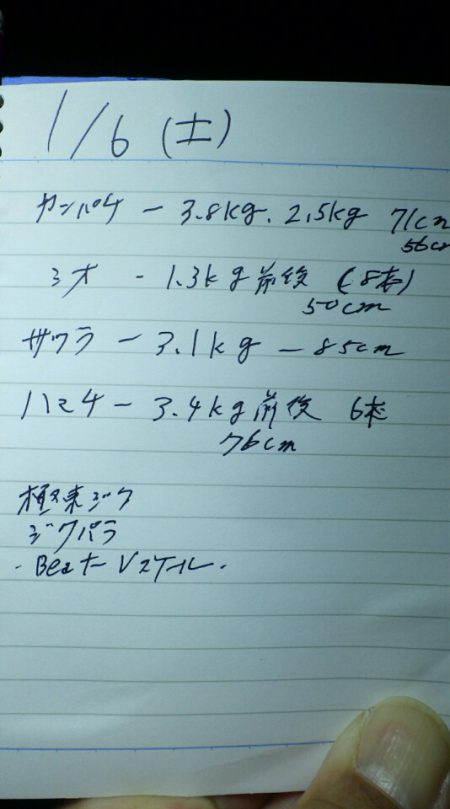 1/6(土)
カンパチ － 3.8kg. 2.5kg 71cm
56cm
ミオ － 1.3kg前後 (8本)
50cm
サワラ － 3.1kg － 85cm
ハマチ － 3.4kg前後 6本
76cm
ジグ
ジグパラ